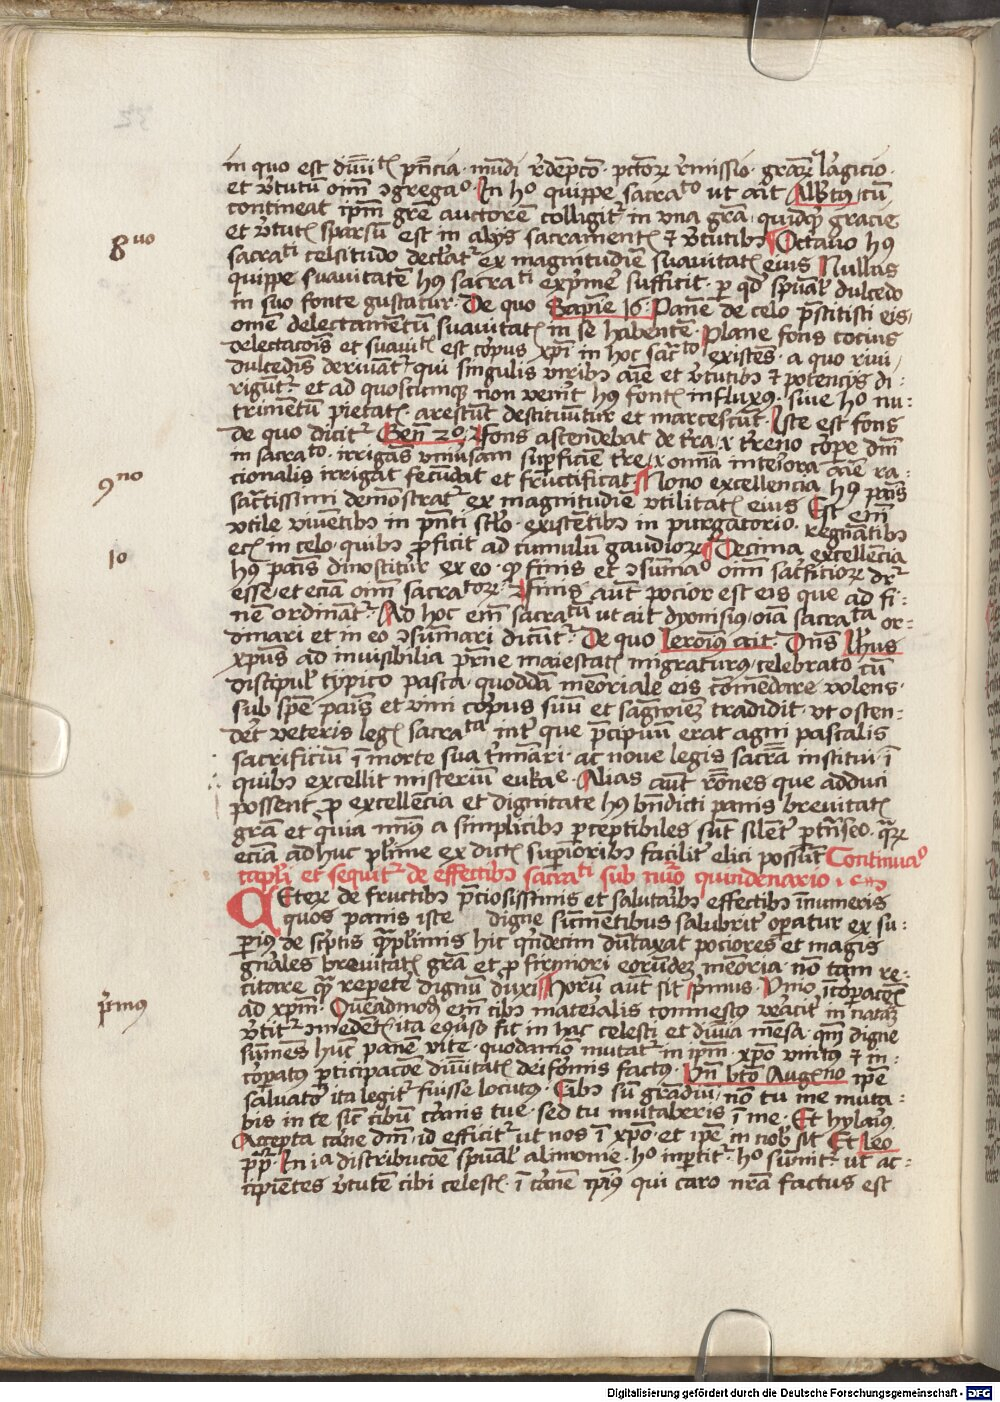 in quo est diuīt͛ p̄ncia · mūdi r̓dēpcō · pctōꝝ r̓missio · grāꝝ lārgicio ·
et v̓tutū oīm ↄgregaᵒ In hᵒ quippe sacraᵗᵒ ut ait Alb̓tus cū
contineat ip̄m grē auctorē colligit᷑ in vna grā · quidqͥd gracie
8ᵘᵒ
et v̓tut͛ sparsū est in alijs sacrament͛ ⁊ v̓tutibꝫ Octauo hꝰ
sacraᵗⁱ celsitudo declarat᷑ ex magnitudīe suauitat͛ eius Nullus
quippe suauitatē hꝰ sacraᵗⁱ exp̓me sufficit · ꝑ qd̓ sp̄ual̓ dulcedo
in suo fonte gustatur · De quo Sapīe 16 · Panē de celo p̄stitisti eis
omē delectamentū suauitat͛ in se habentē · Plane fons tocius
delectacōis et suauit͛ est corpus xp̄i in hoc sacᵗᵒ existēs · a quo riui
dulcedīs deriuant᷑ qui singulis viribꝫ aīe et v̓tutibꝫ ⁊ potencijs di-
rigūt᷑ · et ad quoscumqꝫ non venit hꝰ font͛ influxꝰ · siue hᵒ nu-
trimentū pietat͛ · arescūt destituūtur et marcescūt · Iste est fons
de quo dicit᷑ Gen̄ 2ᵒ · Fons ascendebat de tr̄a · x t̓reno corpe dm̄
in sacraᵗᵒ · irrigās vniuersam suꝑficiē t̓re · x omnia interiora aīe ra-
9ⁿᵒ
cionalis irrigat fecūdat et fructificat · Nono excellencia hꝰ panis
sacͣtissimi demōstrat᷑ ex magnitudīe vtilitat͛ eius Est em̄
vtile viuentibꝫ in p̄nti sclo · existentibꝫ in purgatorio · regnātibꝫ
10
ec͛ in celo · quibꝫ ꝓficit ad cumulū gaudioꝝ Decima excellēcia
hꝰ panis dinoscitur ex eo · ꝙ finis et ↄsumaᵒ oīm sacͥficioꝝ dr᷑
esse · et eciā oīm sacraᵗᵒꝝ · Finis aut pocior est eis que ad fi-
nē ordināt᷑ · Ad hoc em̄ sacraᵗū ut ait dyonisiꝰ oīa sacraᵗᵃ or-
dinari et in eo ↄsūmari dicūt᷑ · De quo Ieronīꝰ ait · Dn̄s Ih̄us
xp̄us ad inuisibilia pr̄ne maiestat͛ migraturꝰ celebrato cū
discipul̓ typico pasca · quoddā mēoriale eis cōmēdare volens ·
sub sp̄e panis et vini corpus suū et sāguinēꝫ tradidit · vt osten-
det̓ veteris leg͛ sacraᵗᵃ int̓ que p̄cipuū erat agni pascalis
sacrificiū ī morte sua t̓minari · ac noue legis sacrā institui · ī
quibꝫ excellit misteriū eukaᵉ · Alias aut rōnes que adduci
possent · ꝓ excellēcia et dignitate hꝰ bn̄dicti panis breuitat͛
grā et qͥa minꝰ a simplicibꝫ ꝑceptibiles sūt silent̓ ꝑtn̄seo · quaꝝ
eciā adhuc pl̓ime ex dict͛ suꝑioribꝫ facilit̓ elici possūt Continuaᵒ
capl̓i et sequit᷑ de effectibꝫ sacraᵗⁱ sub nūo quindenario · c
CEterꝝ de fructibꝫ p̄ciosissimis et salutaribꝫ effectibꝫ īnumeris
quos panis iste digne sūmentibus salubrit̓ oꝑatur ex su-
ꝑius de sc̓ptis qͣmpl̓imis hic qͥndecim dūtaxat pociores et magis
gn̄ales breuitat͛ grā et ꝓ firmiori eorūdeꝫ mēoria nō tam re-
citare qͣm repete dignū duxi Horū aut sit p̓mus · Vnio īcorꝑacēs
p̓mꝰ
ad xp̄m · Quēadmodū em̄ cibꝰ materialis commestꝰ veracit̓ in naturā
v̓tit᷑ ↄmedent͛ · ita eq̓uso fit in hac celesti et diuīa mēsa · qm̄ digne
sumēs hūc panē vite · quodāmō mutat᷑ in ip̄m · xp̄o vnitus ⁊ in-
corꝑatus ꝑticipacōe diuītat͛ deiformis factꝰ · Vn̄ btō Augⁿᵒ ip̄e
saluator ita legit᷑ fuisse locutus · Cibꝰ sū grādiū · nō tu me muta-
bis in te sic̄ cibū carnis tue · sed tu mutaberis ī me · Et hylariꝰ
Accepta carne dm̄ · id efficit᷑ ut nos ī xp̄o · et ip̄e in nob̓ sit Et Leo
pp̄ · In iᵃ distribucōe sp̄ual̓ alimonie · hᵒ inꝑtit᷑ · hᵒ sumit᷑ · ut ac-
cipientes v̓tutē cibi celest͛ · ī carnē ip̄iꝰ qui caro nr̄a factus est
Digitalisierung gefördert durch die Deutsche Forschungsgemeinschaft - DFG